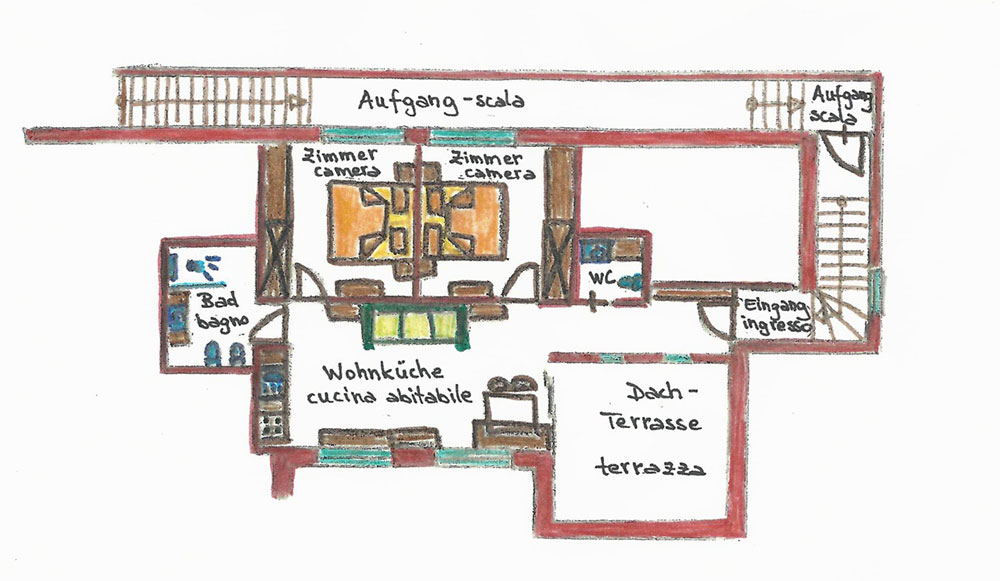 Aufgang-scala
Aufgang
scala
Zimmer
camera
Zimmer
camera
WC
Bad
bagno
Eingang
ingresso
Wohnküche
cucina abitabile
Dach-
Terrasse
terrazza